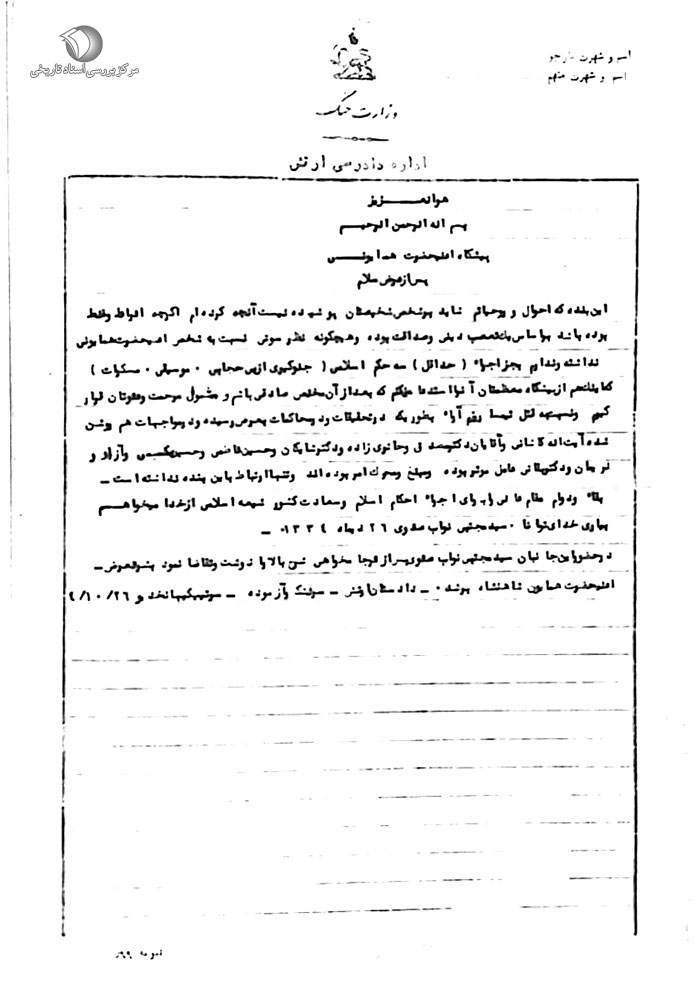 مرکز بررسی اسناد تاریخی
اسم و شهرت
اسم و شهرت متهم
وزارت جنگ
اداره دادرسی ارتش
هوالعـــزیز
بسم اله الرحمن الرحیم
پیشگاه اعلیحضرت همایونی
پس از عرض سلام
این بنده که احوال و روحیاتم شاید بر شخص شخیصتان پوشیده نیست آنچه کرده ام اگرچه افراط و غلط
بوده باشد بر اساس یک تعصب دینی و صداقت بوده و هیچگونه نظر سوئی نسبت به شخص اعلیحضرت همایونی
نداشته و ندارم بجز اجراء ( حداقل ) سه حکم اسلامی ( جلوگیری از بی حجابی ۰ موسیقی ۰ مسکرات )
از پیشگاه معظمتان استدعا میکنم که بعد از آن مخلص صادقی باشم و مشمول مرحمت و عفوتان قرار
گیرم و نسبت به قتل رزم آراء بطوریکه در تحقیقات و در محاکمات بعرض رسیده و در مواجهات هم روشن
شده آیت اله کاشانی و آقایان دکتر مصدق و حائری زاده و دکتر شایگان و حسین فاطمی و حسین مکی و آزاد و
نریمان و دکتر بقائی عامل موثر بوده و مبلغ و محرک امر بوده اند و تنها ارتباط باین بنده نداشته است –
بقاء و دوام مقام عالی را برای اجراء احکام اسلام و سعادت کشور شیعه اسلامی از خدا میخواهــم
بیاری خدای توانا ۰ سید مجتبی نواب صفوی ۲۶ دیماه ۱۳۳۴ ۰ –
در حضور اینجانبان سید مجتبی نواب صفوی پس از قرائت متن بالا را نوشت و تقاضا نمود بشرفعرض –
اعلیحضرت همایون شاهنشاه برسد ۰ – دادستان ارتش – سرلشگر آزموده – سرتیپ کیهانخدیو ۱۰/۲۶/